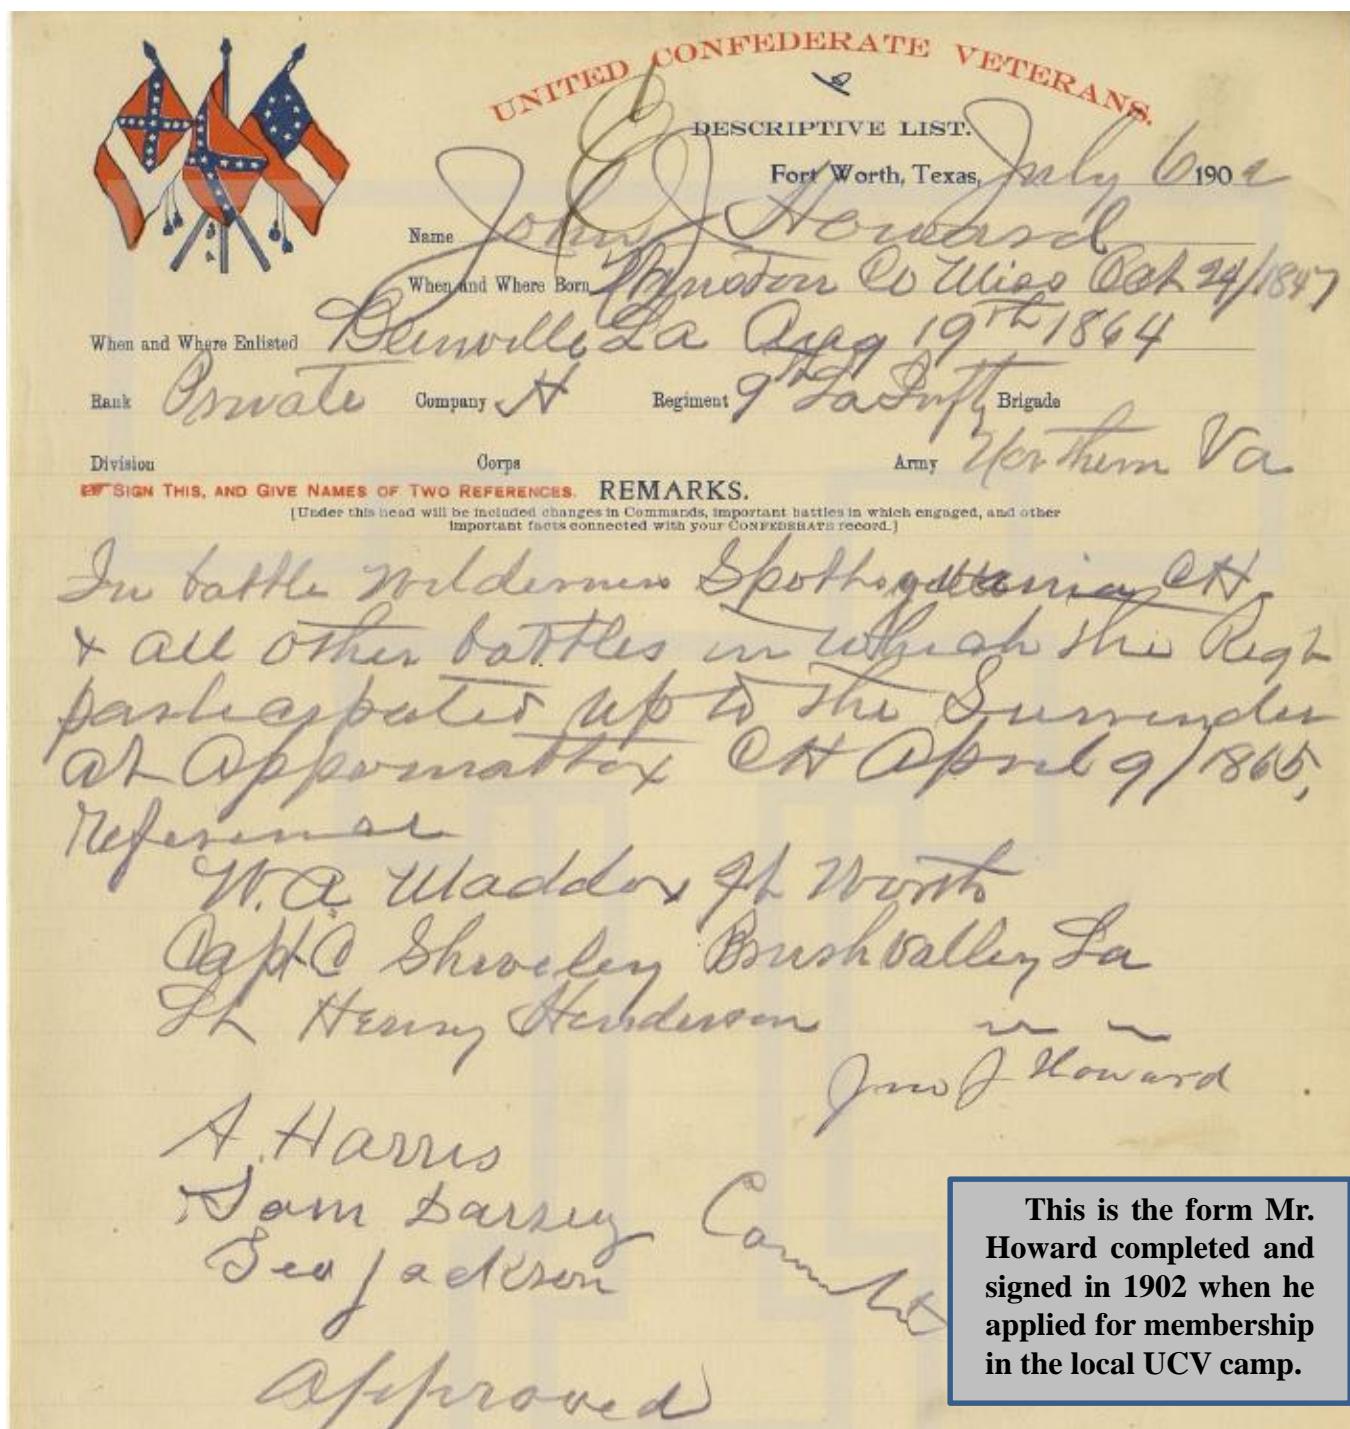 UNITED CONFEDERATE VETERANS.
DESCRIPTIVE LIST.
Fort Worth, Texas, July 6 1902
Name John J Howard
When and Where Born Winston Co Miss Oct 24/1847
When and Where Enlisted Bienville La Aug 19th 1864
Rank Private Company H Regiment 9th La Infty Brigade
Division Corps Army Northern Va
SIGN THIS, AND GIVE NAMES OF TWO REFERENCES. REMARKS.
[Under this head will be included changes in Commands, important battles in which engaged, and other
important facts connected with your CONFEDERATE record.]
In battle Wilderness CH
& all other battles in which the Regt
participated up to the Surrender
at Appomattox CH April 9/1865,
Reference
W. A. Maddox Ft Worth
Capt C Shiveley Brush Valley La
Lt Henry Henderson " "
Jno J Howard
A. Harris
Tom Darsey
Geo Jackson
Approved
This is the form Mr.
Howard completed and
signed in 1902 when he
applied for membership
in the local UCV camp.